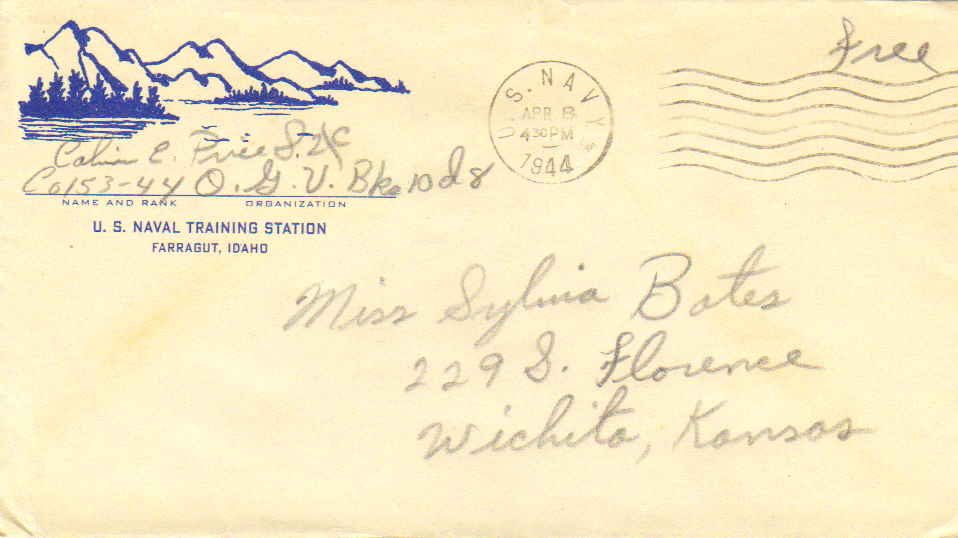 Free
U.S. NAVY
APR 8
4 30 PM
1944
Calvin E. Price S. 2/C
Co 153-44 O. G. U. Bks 10 d 8
NAME AND RANK ORGANIZATION
U. S. NAVAL TRAINING STATION
FARRAGUT, IDAHO
Miss Sylvia Bates
229 S. Florence
Wichita, Kansas